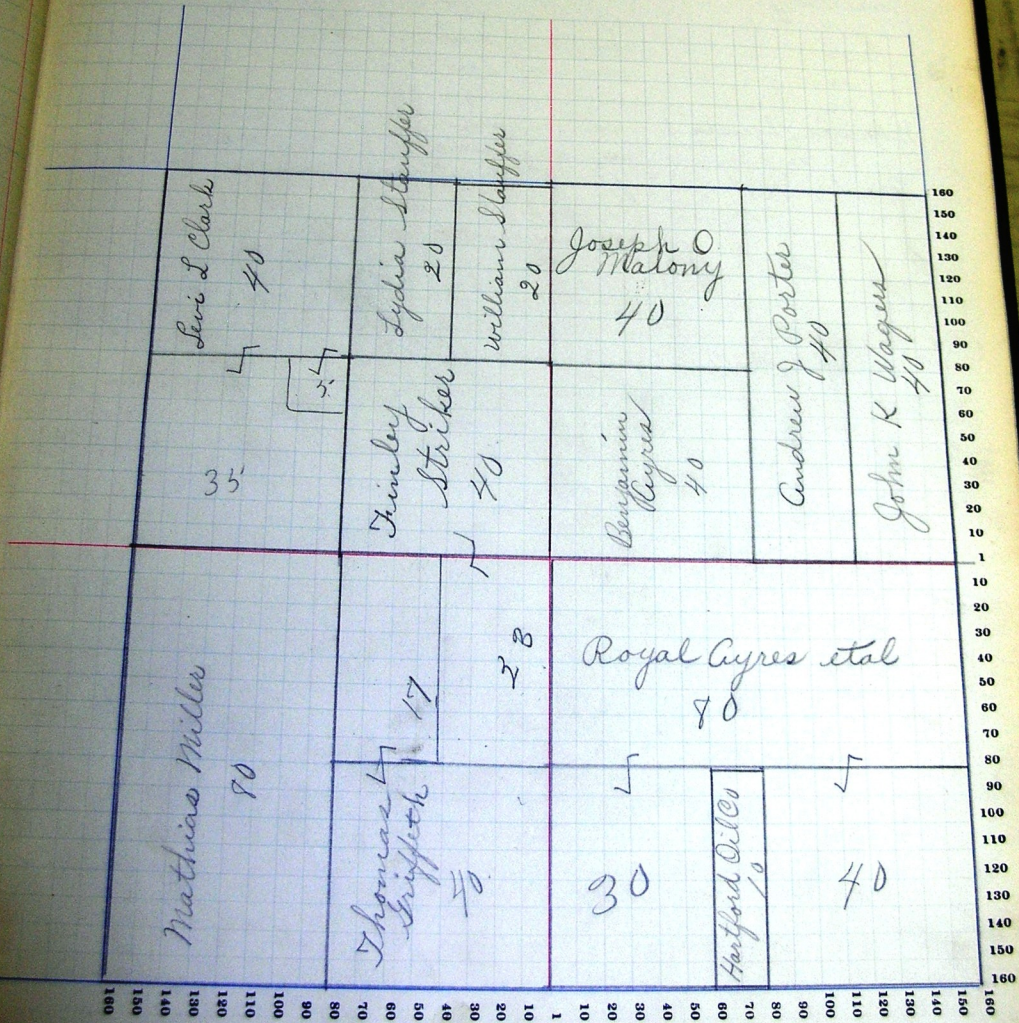 Levi L Clark
40
Lydia Stauffer
20
William Stauffer
20
Joseph O
Malony
40
Andrew J Porter
40
John K Wagers
40
35
5
Finley
Striker
40
Benjamin
Ayres
40
Mathias Miller
80
17
23
Royal Ayres etal
80
Thomas
Griffeth
30
Hartford Oil Co
10
40
160
150
140
130
120
110
100
90
80
70
60
50
40
30
20
10
1
10
20
30
40
50
60
70
80
90
100
110
120
130
140
150
160
160 150 140 130 120 110 100 90 80 70 60 50 40 30 20 10 1 10 20 30 40 50 60 70 80 90 100 110 120 130 140 150 160